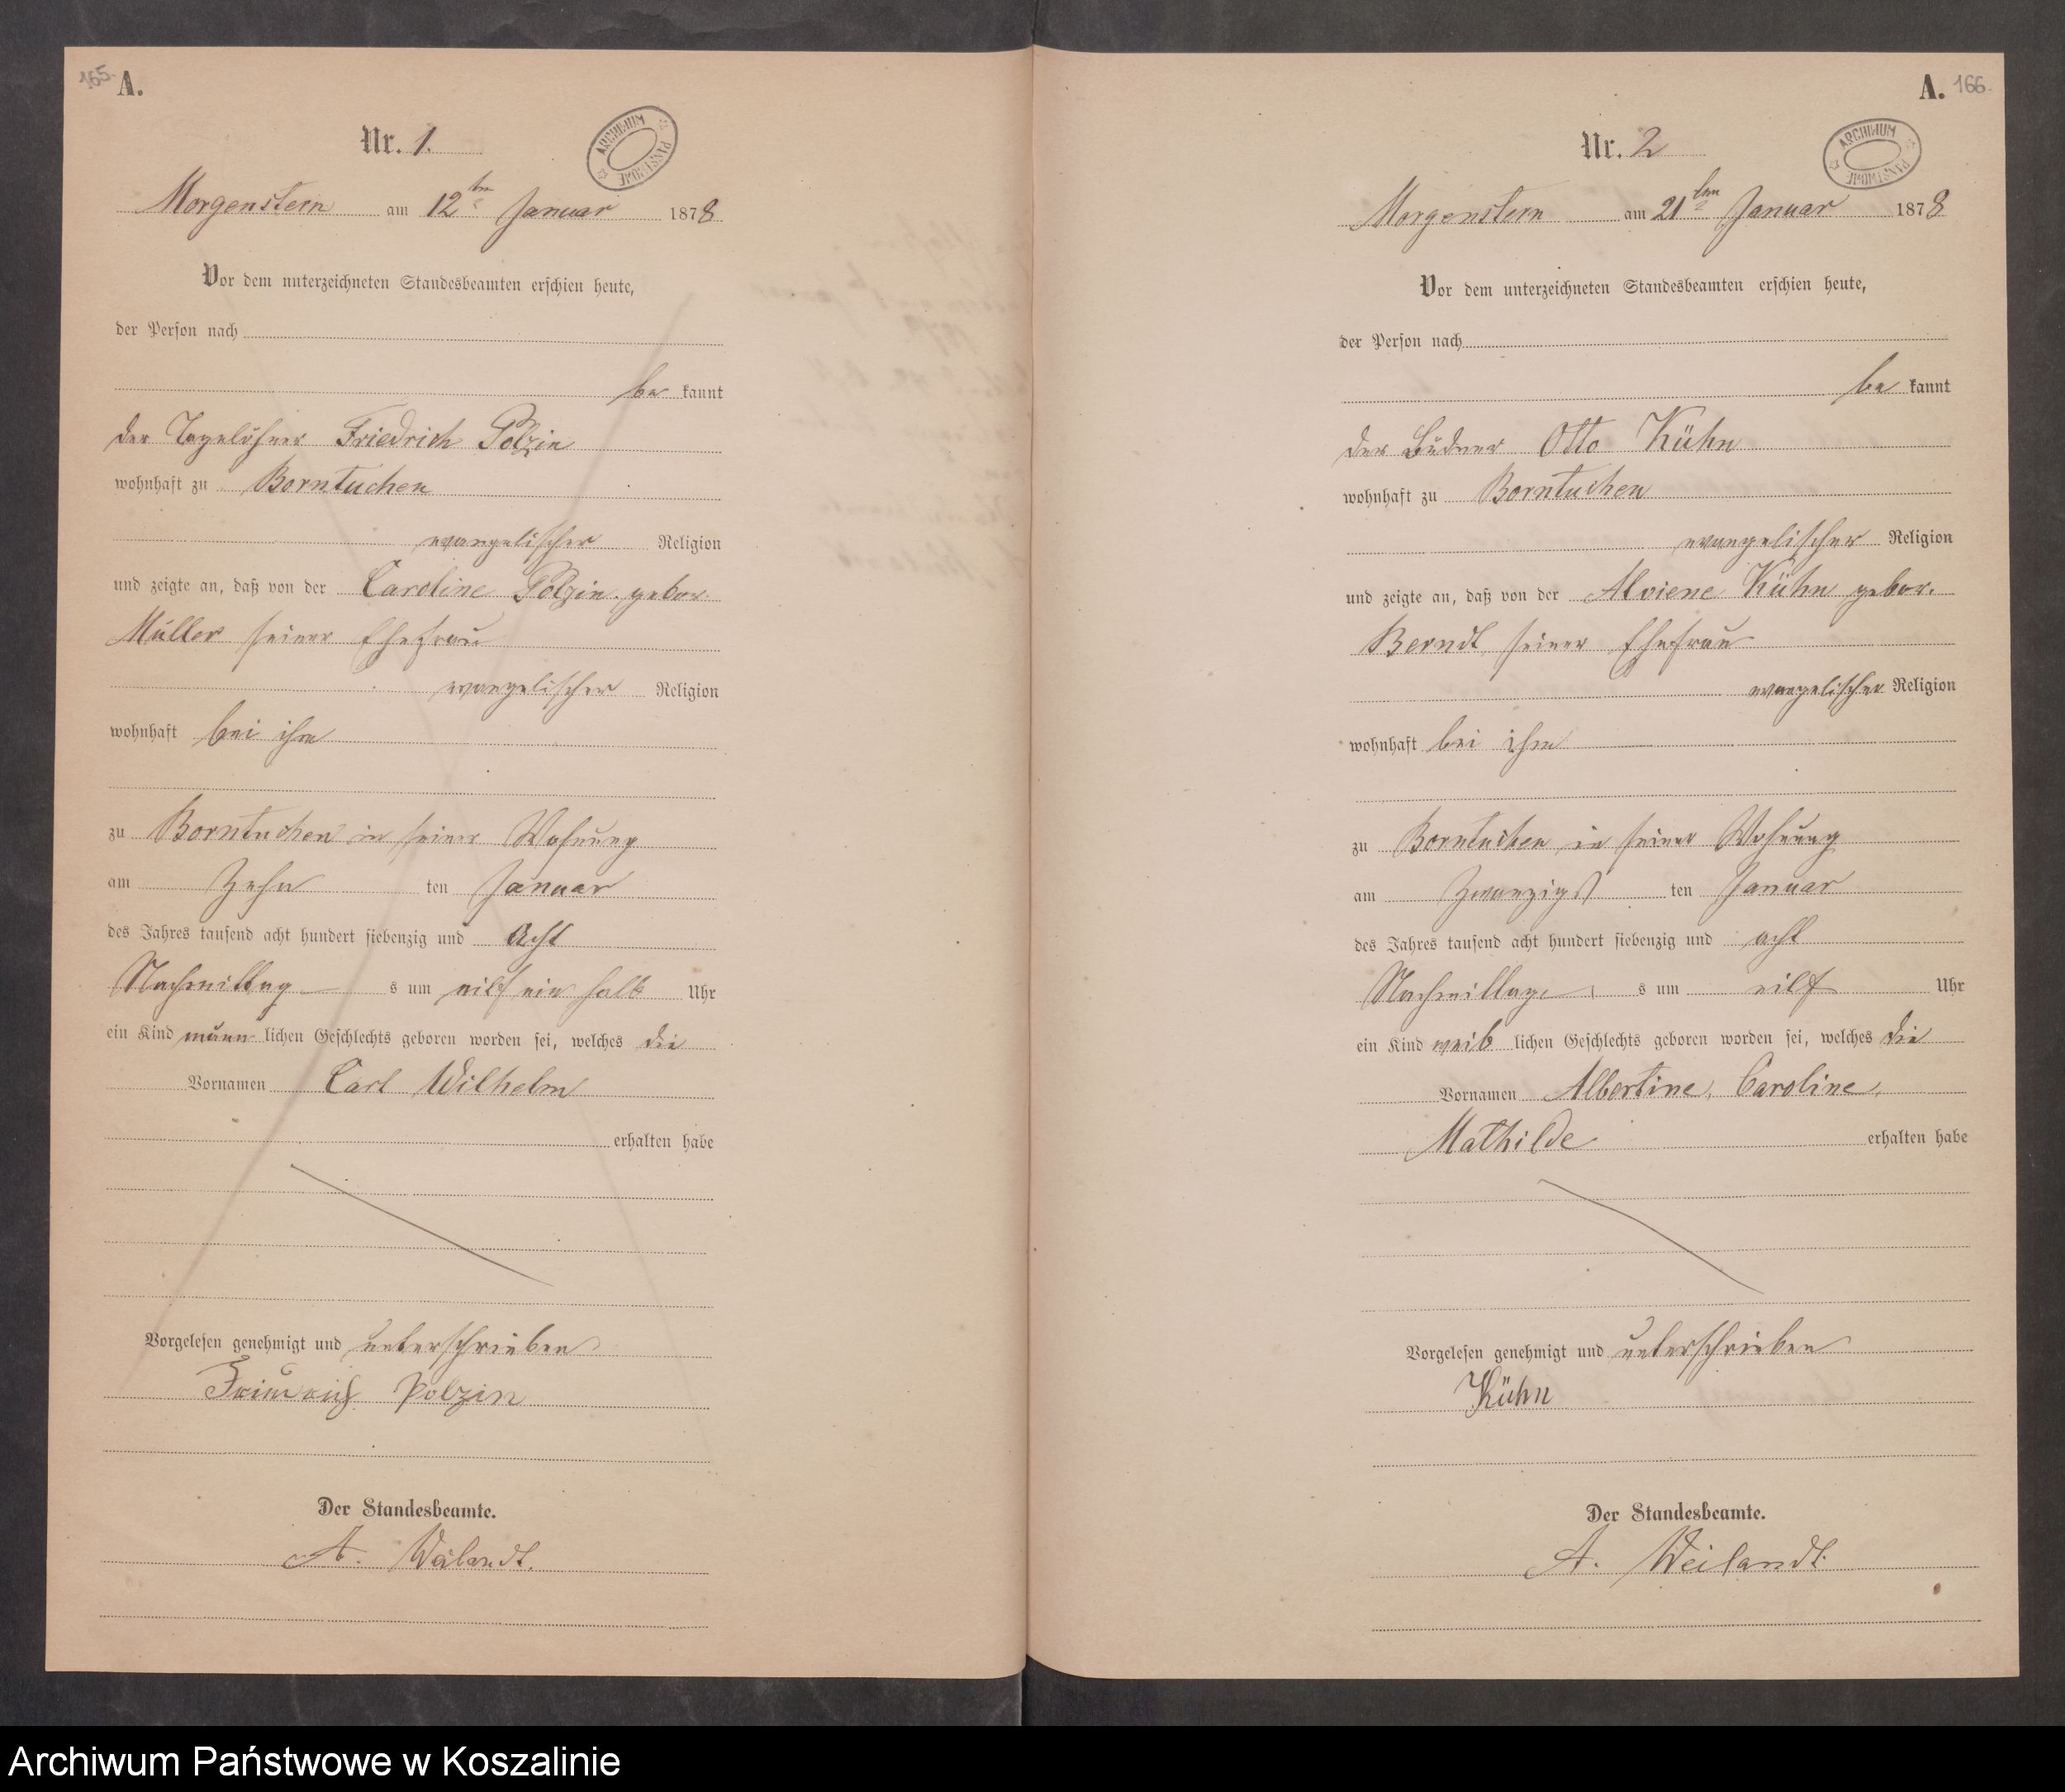 165.
A.
Nr. 1.
ARCHIWUM PAŃSTWOWE
Morgenstern am 12ten Januar 1878
Vor dem unterzeichneten Standesbeamten erschien heute,
der Person nach
be kannt
der Tagelöhner Friedrich Polzin
wohnhaft zu Borntuchen
evangelischer Religion
und zeigte an, daß von der Caroline Polzin gebor
Müller seiner Ehefrau
evangelischer Religion
wohnhaft bei ihm
zu Borntuchen in seiner Wohnung
am Zehn ten Januar
des Jahres tausend acht hundert siebenzig und Acht
Nachmittag s um eilf ein halb Uhr
ein Kind männ lichen Geschlechts geboren worden sei, welches die
Vornamen Carl Wilhelm
erhalten habe
Vorgelesen genehmigt und unterschrieben
Friedrich Polzin
Der Standesbeamte.
A. Weilandt.
A. 166.
Nr. 2
ARCHIWUM PAŃSTWOWE
Morgenstern am 21ten Januar 1878
Vor dem unterzeichneten Standesbeamten erschien heute,
der Person nach
be kannt
der Büdner Otto Kühn
wohnhaft zu Borntuchen
evangelischer Religion
und zeigte an, daß von der Alviene Kühn gebor.
Berndt seiner Ehefrau
evangelischer Religion
wohnhaft bei ihm
zu Borntuchen in seiner Wohnung
am Zwanzigst ten Januar
des Jahres tausend acht hundert siebenzig und acht
Nachmittags s um eilf Uhr
ein Kind weib lichen Geschlechts geboren worden sei, welches die
Vornamen Albertine, Caroline,
Mathilde erhalten habe
Vorgelesen genehmigt und unterschrieben
Kühn
Der Standesbeamte.
A. Weilandt.
Archiwum Państwowe w Koszalinie